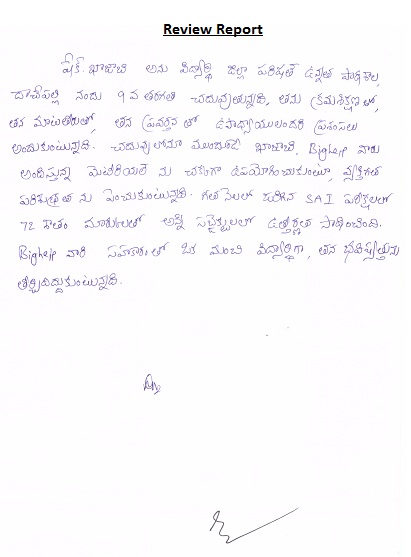 Review Report
షేక్. ఖాజాబి అను విద్యార్థి జిల్లా పరిషత్ ఉన్నత పాఠశాల,
దాచేపల్లి నందు 9 వ తరగతి చదువుతున్నది. తను క్రమశిక్షణలో,
తన మాటతీరుతో, తన ప్రవర్తన తో ఉపాధ్యాయులందరి ప్రశంసలు
అందుకుంటున్నది. చదువులోనూ ముందుండే ఖాజాబి, Bighelp వారు
అందిస్తున్న మెటీరియల్ ను చక్కగా ఉపయోగించుకుంటూ, వ్యక్తిగత
పరిశుభ్రత ను పెంచుకుంటున్నది. గత నెలలో జరిగిన SA I పరీక్షలలో
72 శాతం మార్కులతో అన్ని సబ్జెక్టులలో ఉత్తీర్ణత సాధించింది.
Bighelp వారి సహకారంతో ఒక మంచి విద్యార్థిగా, తన భవిష్యత్తును
తీర్చిదిద్దుకుంటున్నది.